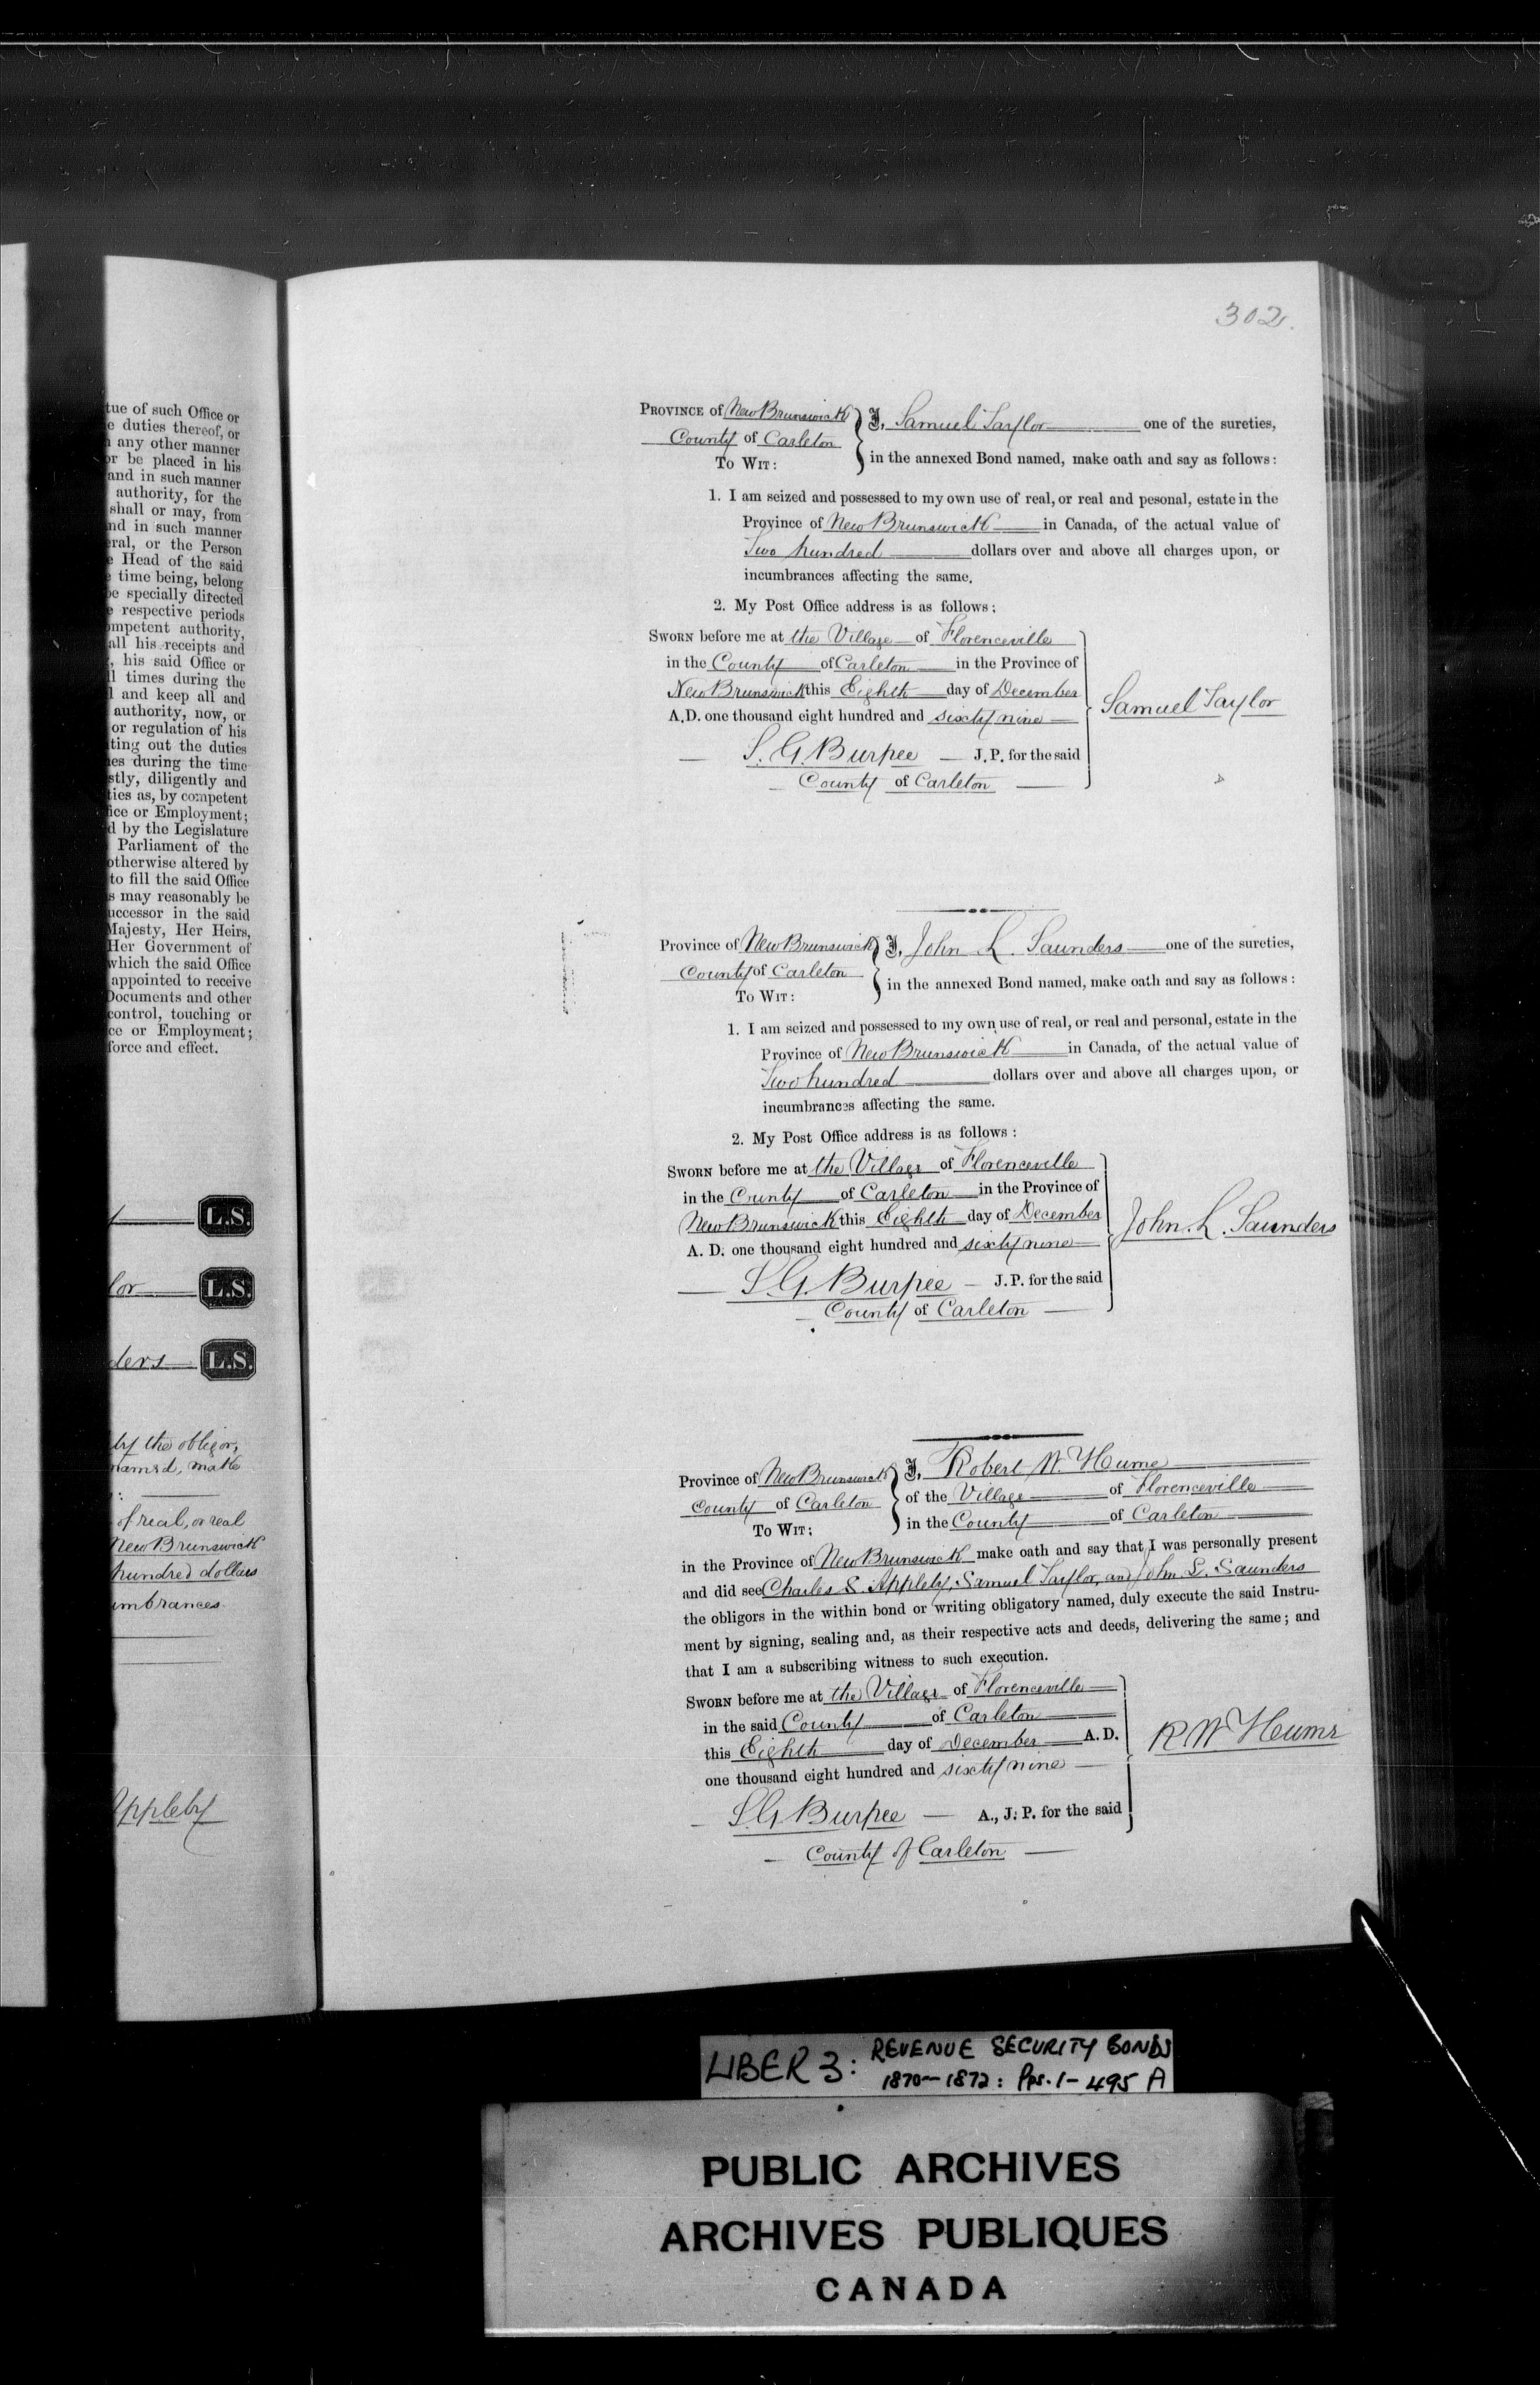 302.
tue of such Office or
e duties thereof, or
any other manner
or be placed in his
and in such manner
authority, for the
shall or may, from
nd in such manner
eral, or the Person
e Head of the said
time being, belong
be specially directed
e respective periods
ompetent authority,
all his receipts and
, his said Office or
ll times during the
l and keep all and
authority, now, or
or regulation of his
ting out the duties
ies during the time
stly, diligently and
ties as, by competent
fice or Employment;
d by the Legislature
Parliament of the
otherwise altered by
to fill the said Office
s may reasonably be
uccessor in the said
Majesty, Her Heirs,
Her Government of
which the said Office
appointed to receive
Documents and other
control, touching or
ce or Employment;
force and effect.
L.S.
lor L.S.
ders L.S.
by the obligor,
named, make
of real, or real
New Brunswick
hundred dollars
umbrances
Appleby
PROVINCE of New Brunswick I, Samuel Taylor one of the sureties,
County of Carleton
TO WIT: in the annexed Bond named, make oath and say as follows:
1. I am seized and possessed to my own use of real, or real and pesonal, estate in the
Province of New Brunswick in Canada, of the actual value of
Two hundred dollars over and above all charges upon, or
incumbrances affecting the same.
2. My Post Office address is as follows:
SWORN before me at the Village of Florenceville
in the County of Carleton in the Province of
New Brunswick this Eighth day of December
A.D. one thousand eight hundred and sixty nine
Samuel Taylor
S. G. Burpee J.P. for the said
County of Carleton
Province of New Brunswick I, John L. Saunders one of the sureties,
County of Carleton
TO WIT: in the annexed Bond named, make oath and say as follows:
1. I am seized and possessed to my own use of real, or real and personal, estate in the
Province of New Brunswick in Canada, of the actual value of
Two hundred dollars over and above all charges upon, or
incumbrances affecting the same.
2. My Post Office address is as follows:
SWORN before me at the Village of Florenceville
in the County of Carleton in the Province of
New Brunswick this Eighth day of December
John. L. Saunders
A. D. one thousand eight hundred and sixty nine
S. G. Burpee J. P. for the said
County of Carleton
Province of New Brunswick I, Robert W. Hume
County of Carleton of the Village of Florenceville
TO WIT: in the County of Carleton
in the Province of New Brunswick make oath and say that I was personally present
and did see Charles S. Appleby, Samuel Taylor, and John L. Saunders
the obligors in the within bond or writing obligatory named, duly execute the said Instru-
ment by signing, sealing and, as their respective acts and deeds, delivering the same; and
that I am a subscribing witness to such execution.
SWORN before me at the Village of Florenceville
in the said County of Carleton
this Eighth day of December A. D.
R W Hume
one thousand eight hundred and sixty nine
S. G. Burpee A., J. P. for the said
County of Carleton
LIBER 3: REVENUE SECURITY BONDS
1870-1872: Pps. 1-495 A
PUBLIC ARCHIVES
ARCHIVES PUBLIQUES
CANADA